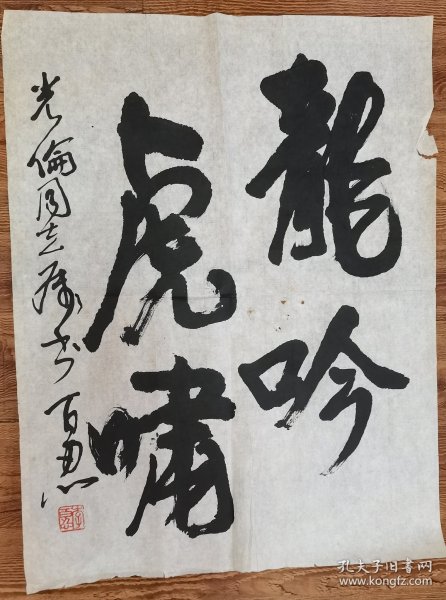 龍吟
虎嘯
光倫同志属书 百忍
孔夫子旧书网
www.kongfz.com